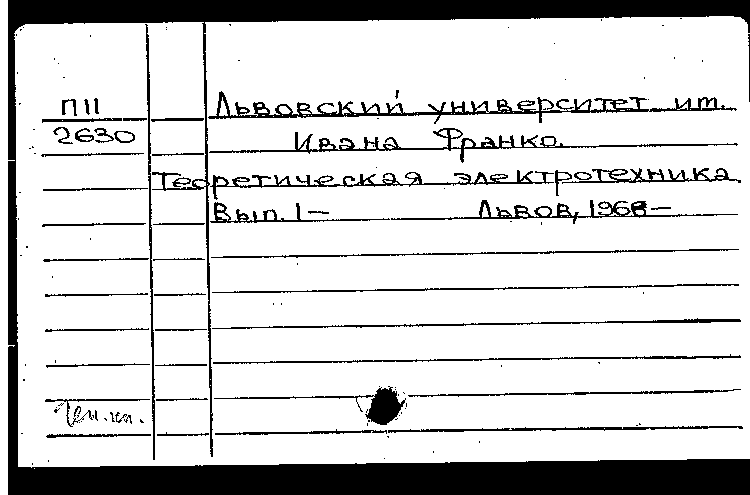 П11 Львовский университет им.
2630 Ивана Франко.
Теоретическая электротехника.
Вып. 1— Львов, 1966—